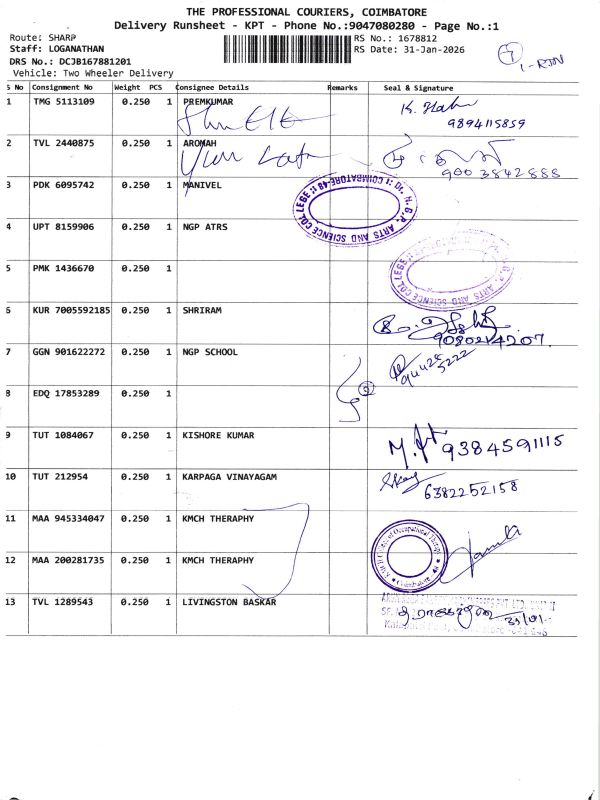 THE PROFESSIONAL COURIERS, COIMBATORE
Delivery Runsheet - KPT - Phone No.:9047080280 - Page No.:1
Route: SHARP
Staff: LOGANATHAN
DRS No.: DCJB167881201
Vehicle: Two Wheeler Delivery
RS No.: 1678812
RS Date: 31-Jan-2026
S No Consignment No Weight PCS Consignee Details Remarks Seal & Signature
1 TMG 5113109 0.250 1 PREMKUMAR
9894115859
2 TVL 2440875 0.250 1 AROMAH
9003842888
3 PDK 6095742 0.250 1 MANIVEL
Dr. N. G. P. ARTS AND SCIENCE COLLEGE :: COIMBATORE-48 ::
4 UPT 8159906 0.250 1 NGP ATRS
G. P. ARTS AND SCIENCE COLLEGE
5 PMK 1436670 0.250 1
6 KUR 7005592185 0.250 1 SHRIRAM
9080214207
7 GGN 901622272 0.250 1 NGP SCHOOL
8 EDQ 17853289 0.250 1
9 TUT 1084067 0.250 1 KISHORE KUMAR
9384591115
10 TUT 212954 0.250 1 KARPAGA VINAYAGAM
6382252158
11 MAA 945334047 0.250 1 KMCH THERAPHY
12 MAA 200281735 0.250 1 KMCH THERAPHY
13 TVL 1289543 0.250 1 LIVINGSTON BASKAR